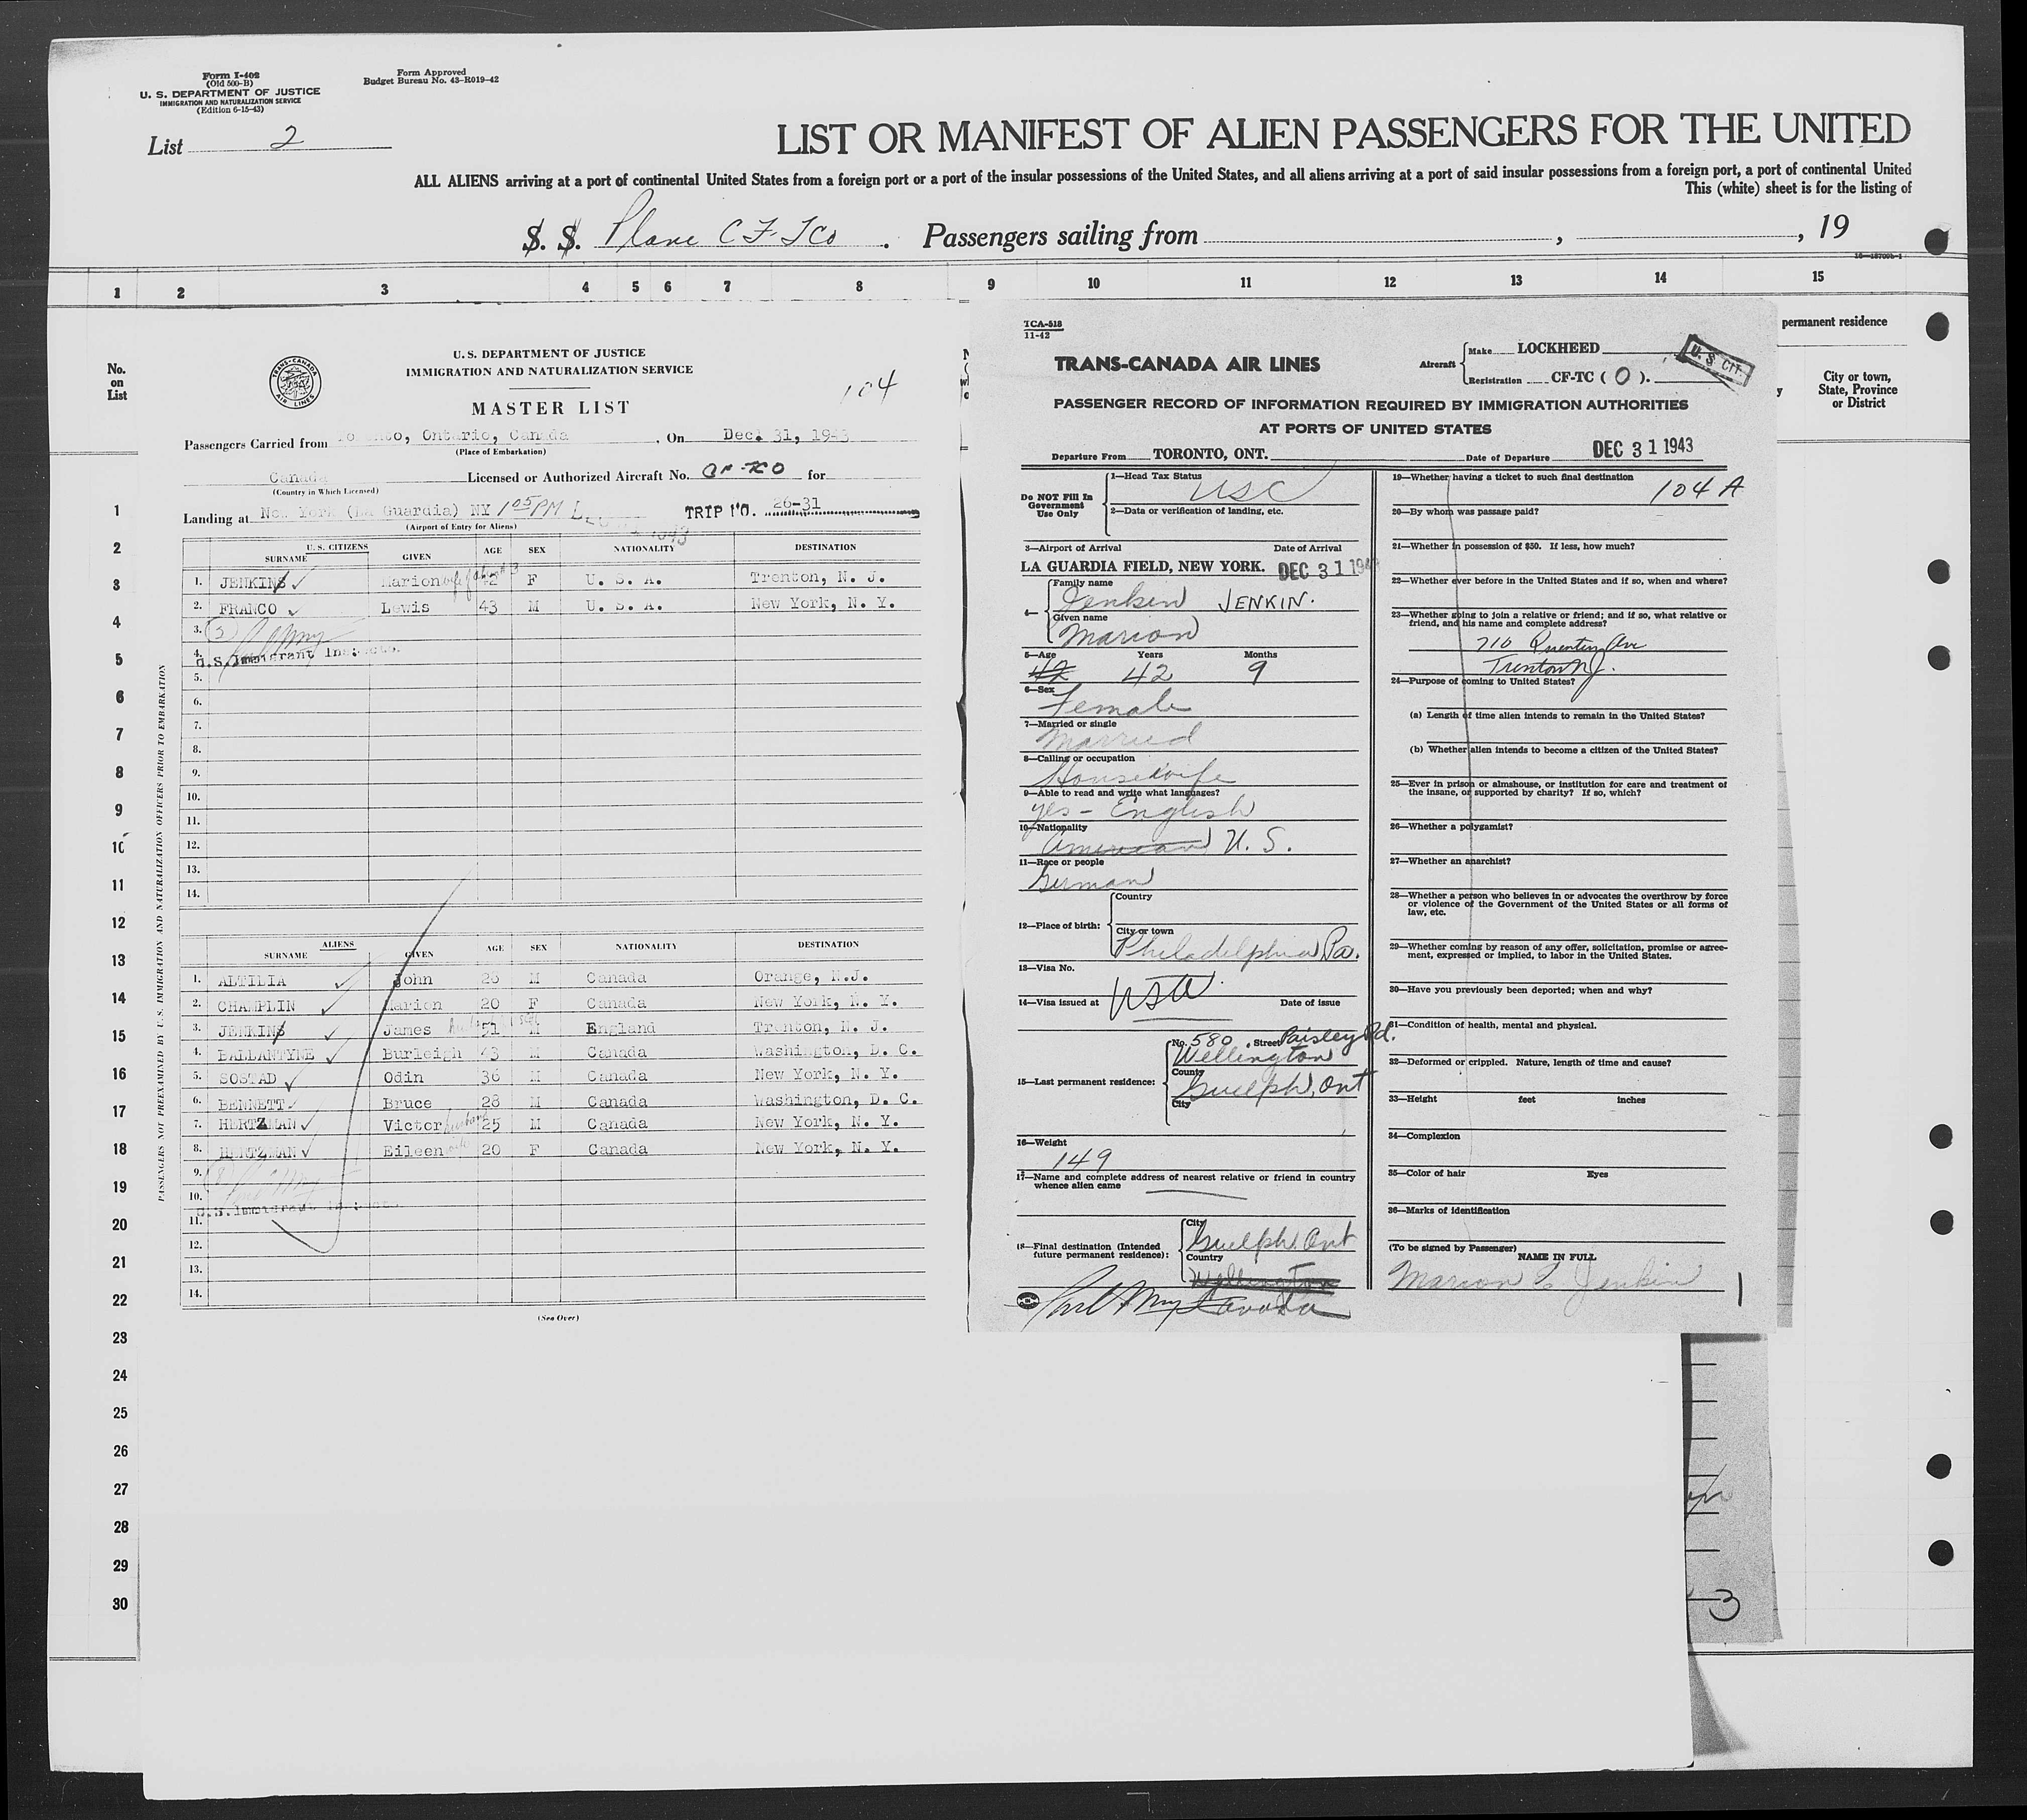 Form I-402
(Old 500-B)
U. S. DEPARTMENT OF JUSTICE
IMMIGRATION AND NATURALIZATION SERVICE
(Edition 6-15-43)
Form Approved
Budget Bureau No. 43-R019-42
List 2
LIST OR MANIFEST OF ALIEN PASSENGERS FOR THE UNITED
ALL ALIENS arriving at a port of continental United States from a foreign port or a port of the insular possessions of the United States, and all aliens arriving at a port of said insular possessions from a foreign port, a port of continental United
This (white) sheet is for the listing of
S. S. Plane CF-TCO . Passengers sailing from , , 19
1 2 3 4 5 6 7 8 9 10 11 12 13 14 15
No.
on
List
permanent residence
City or town,
State, Province
or District
1
2
3
4
5
6
7
8
9
10
11
12
13
14
15
16
17
18
19
20
21
22
23
24
25
26
27
28
29
30
TRANS-CANADA AIR LINES
U. S. DEPARTMENT OF JUSTICE
IMMIGRATION AND NATURALIZATION SERVICE
MASTER LIST
104
Passengers Carried from Toronto, Ontario, Canada , On Dec. 31, 1943
(Place of Embarkation)
Canada Licensed or Authorized Aircraft No. CF-TCO for
(Country in Which Licensed)
Landing at New York (La Guardia) NY 1 05 PM TRIP NO. 26-31
(Airport of Entry for Aliens)
PASSENGERS NOT PREEXAMINED BY U. S. IMMIGRATION AND NATURALIZATION OFFICERS PRIOR TO EMBARKATION
U. S. CITIZENS
SURNAME GIVEN AGE SEX NATIONALITY DESTINATION
1. JENKINS Marion wife of alien #3 42 F U. S. A. Trenton, N. J.
2. FRANCO Lewis 43 M U. S. A. New York, N. Y.
3. (2)
4.
U.S. Immigrant Inspector
5.
6.
7.
8.
9.
10.
11.
12.
13.
14.
ALIENS
SURNAME GIVEN AGE SEX NATIONALITY DESTINATION
1. ALTILIA John 28 M Canada Orange, N.J.
2. CHAMPLIN Marion 20 F Canada New York, N. Y.
3. JENKINS James 51 M England Trenton, N. J.
4. BALLANTYNE Burleigh 43 M Canada Washington, D. C.
5. SOSTAD Odin 36 M Canada New York, N. Y.
6. BENNETT Bruce 28 M Canada Washington, D. C.
7. HERTZMAN Victor husband 25 M Canada New York, N. Y.
8. HERTZMAN Eileen wife 20 F Canada New York, N. Y.
9. (8)
10.
U.S. Immigrant Inspector
11.
12.
13.
14.
(See Over)
TCA-518
11-42
TRANS-CANADA AIR LINES
Aircraft Make LOCKHEED
Registration CF-TC ( O ).
U. S. CIT.
PASSENGER RECORD OF INFORMATION REQUIRED BY IMMIGRATION AUTHORITIES
AT PORTS OF UNITED STATES
Departure From TORONTO, ONT. Date of Departure DEC 31 1943
Do NOT Fill In
Government
Use Only
1—Head Tax Status
USC
2—Data or verification of landing, etc.
3—Airport of Arrival Date of Arrival
LA GUARDIA FIELD, NEW YORK. DEC 31 1943
4— Family name
Jenkin JENKIN.
Given name
Marion
5—Age Years Months
42 42 9
6—Sex
Female
7—Married or single
Married
8—Calling or occupation
Housewife
9—Able to read and write what languages?
yes - English
10—Nationality
American U. S.
11—Race or people
German
12—Place of birth: Country
City or town
Philadelphia Pa.
13—Visa No.
14—Visa issued at USA Date of issue
15—Last permanent residence: No. 580 , Street Paisley Rd.
Wellington
County
Guelph, Ont
City
16—Weight
149
17—Name and complete address of nearest relative or friend in country
whence alien came
18—Final destination (Intended
future permanent residence):
City
Guelph, Ont
Country
Wellington
Canada
19—Whether having a ticket to such final destination
104 A
20—By whom was passage paid?
21—Whether in possession of $50. If less, how much?
22—Whether ever before in the United States and if so, when and where?
23—Whether going to join a relative or friend; and if so, what relative or
friend, and his name and complete address?
710 Quentin Ave
Trenton NJ.
24—Purpose of coming to United States?
(a) Length of time alien intends to remain in the United States?
(b) Whether alien intends to become a citizen of the United States?
25—Ever in prison or almshouse, or institution for care and treatment of
the insane, or supported by charity? If so, which?
26—Whether a polygamist?
27—Whether an anarchist?
28—Whether a person who believes in or advocates the overthrow by force
or violence of the Government of the United States or all forms of
law, etc.
29—Whether coming by reason of any offer, solicitation, promise or agree-
ment, expressed or implied, to labor in the United States.
30—Have you previously been deported; when and why?
31—Condition of health, mental and physical.
32—Deformed or crippled. Nature, length of time and cause?
33—Height feet inches
34—Complexion
35—Color of hair Eyes
36—Marks of identification
(To be signed by Passenger)
NAME IN FULL
Marion Jenkin
1
3